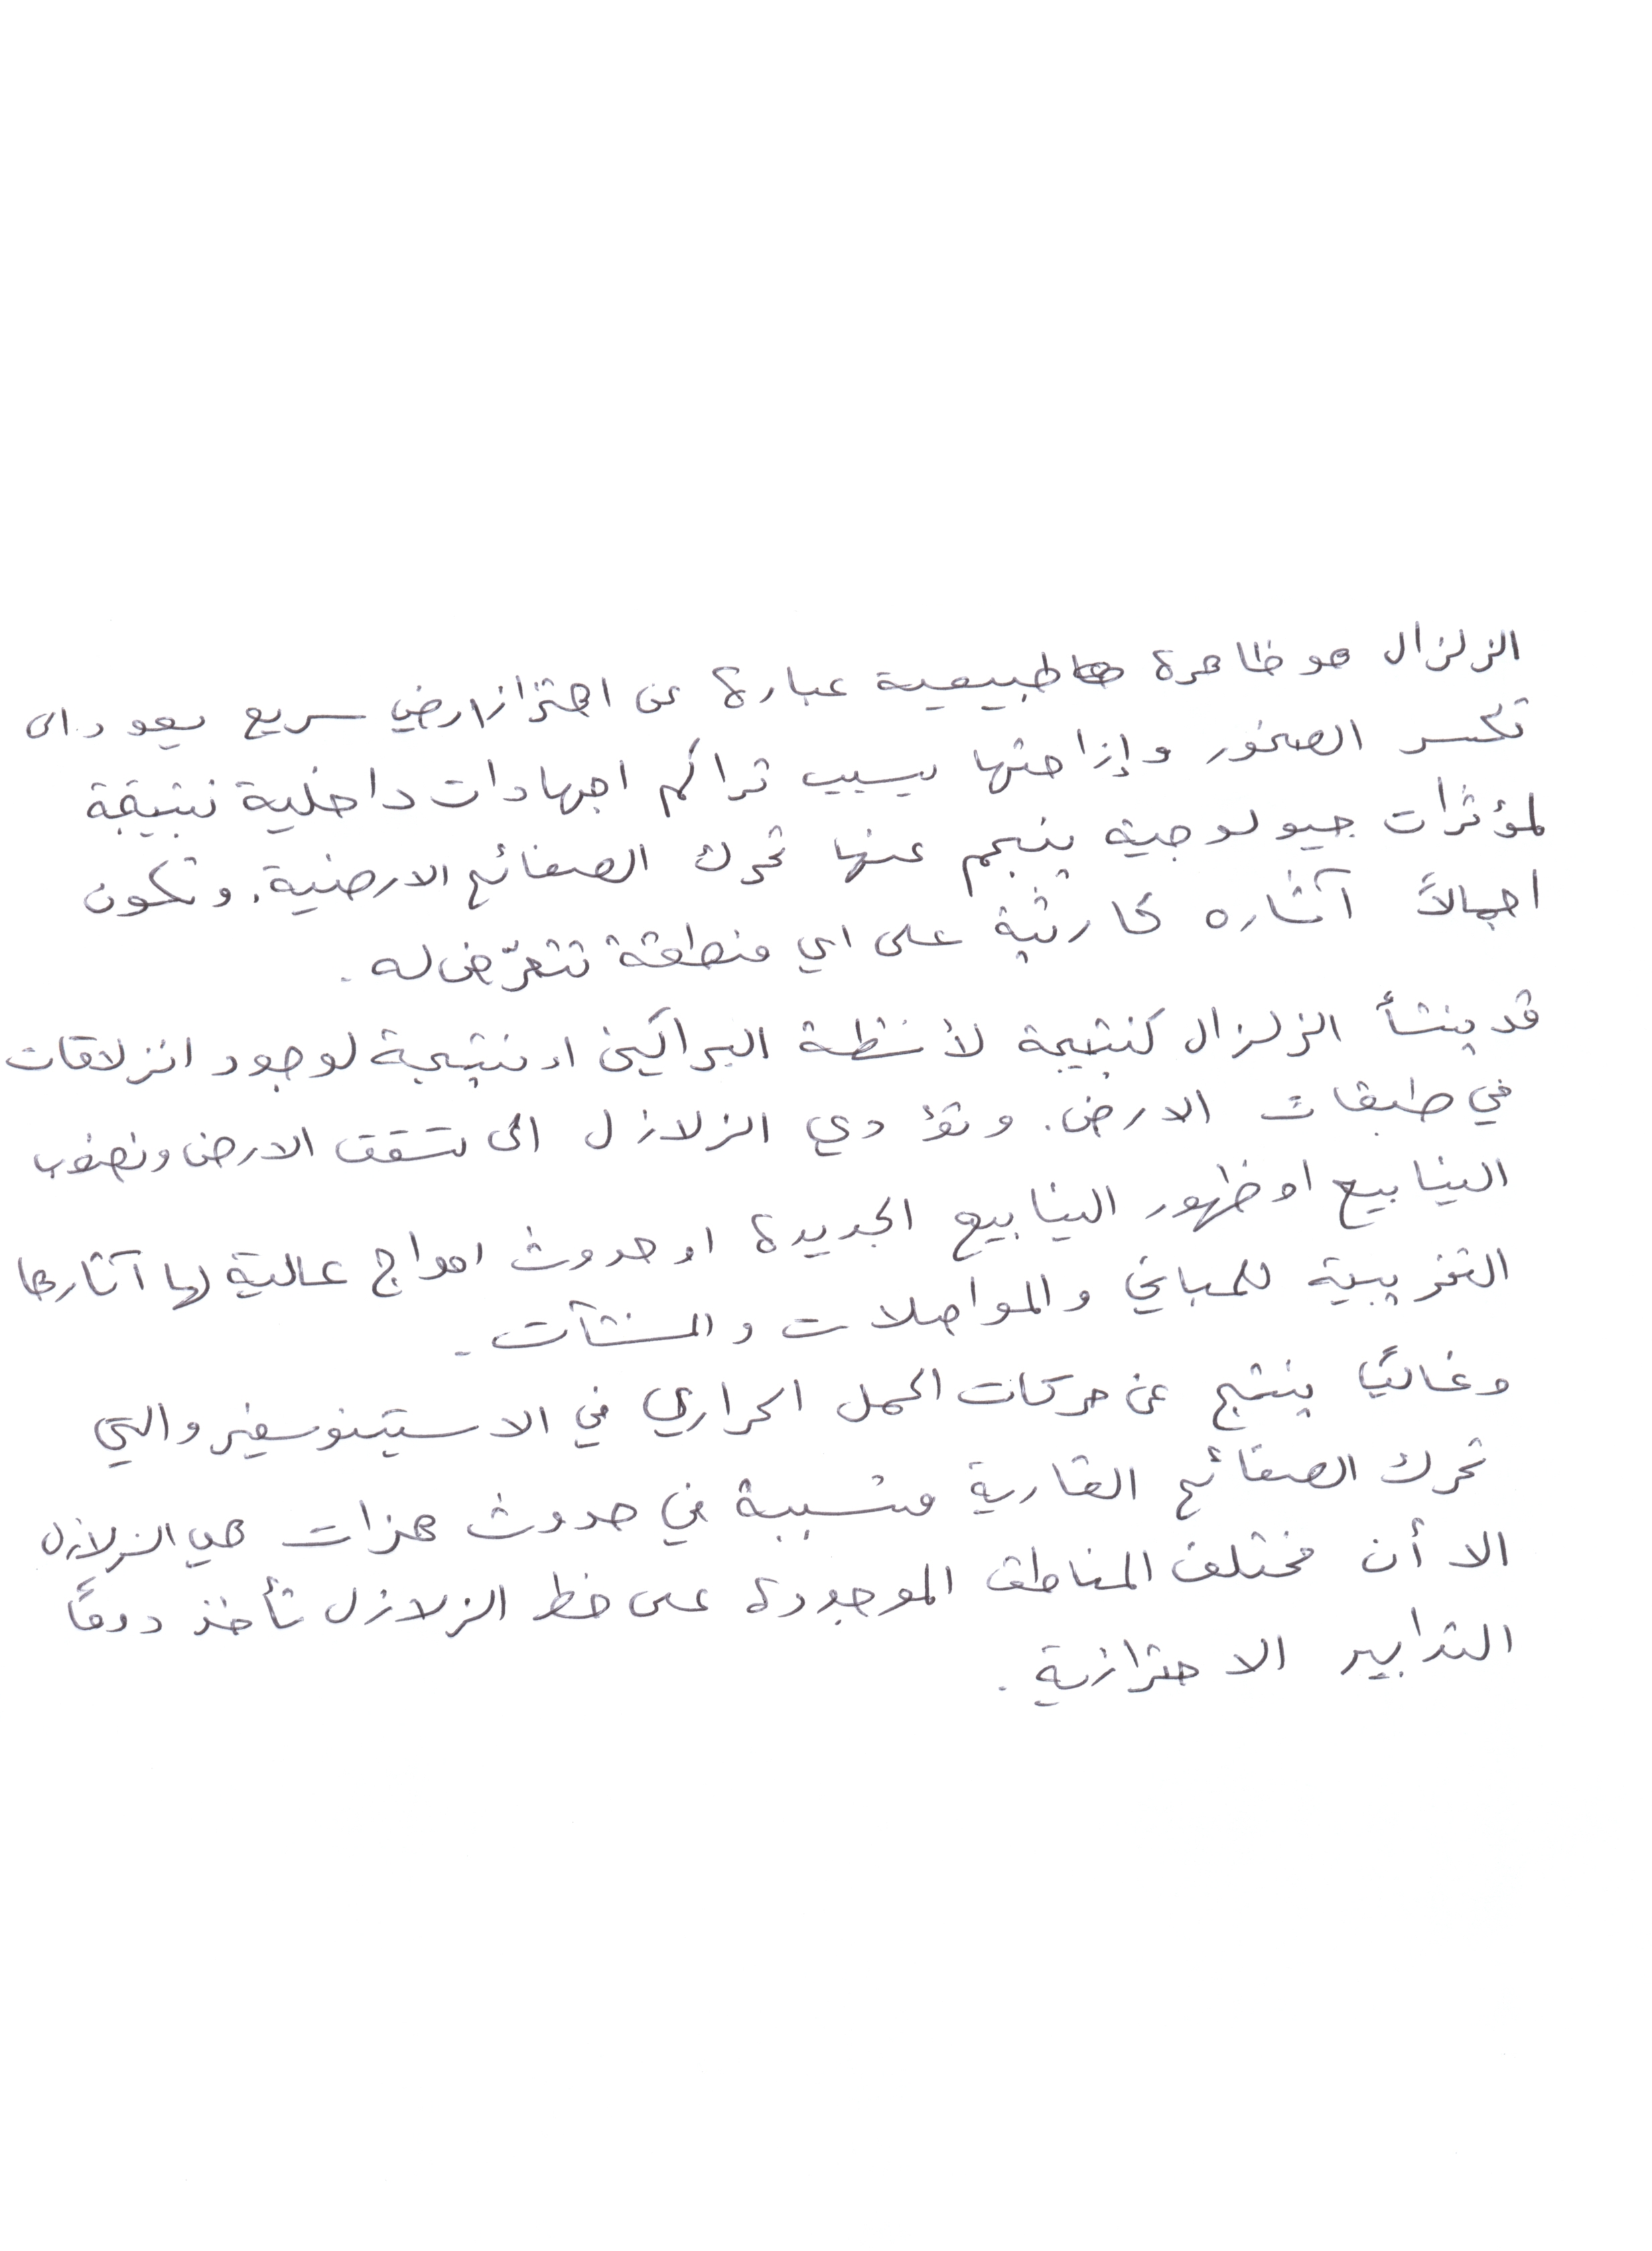 الزلزال هو ظاهرة طبيعية عبارة عن اهتزاز ارضي سريع يعود الى
تكسر الصخور وإزاحتها بسبب تراكم اجهادات داخلية نتيجة
لمؤثرات جيولوجية ينجم عنها تحرك الصفائح الارضية. وتكون
اجمالاً آثاره كارثية على اي منطقة تتعرّض له.
قد ينشأ الزلزال كنتيجة لأنشطة البراكين او نتيجة لوجود انزلاقات
في طبقات الارض. وتؤدي الزلازل الى تشقق الارض ونضوب
الينابيع او ظهور الينابيع الجديدة او حدوث امواج عالية لها آثارها
التخريبية للمباني والمواصلات والمنشآت.
وغالبًا ينتج عن حركات الحمل الحراري في الاستينوسفير والتي
تحرك الصفائح القارية متسببة في حدوث هزات هي الزلازل
الا أن مختلف المناطق الموجودة على خط الزلازل تأخذ دومًا
التدابير الاحترازية.